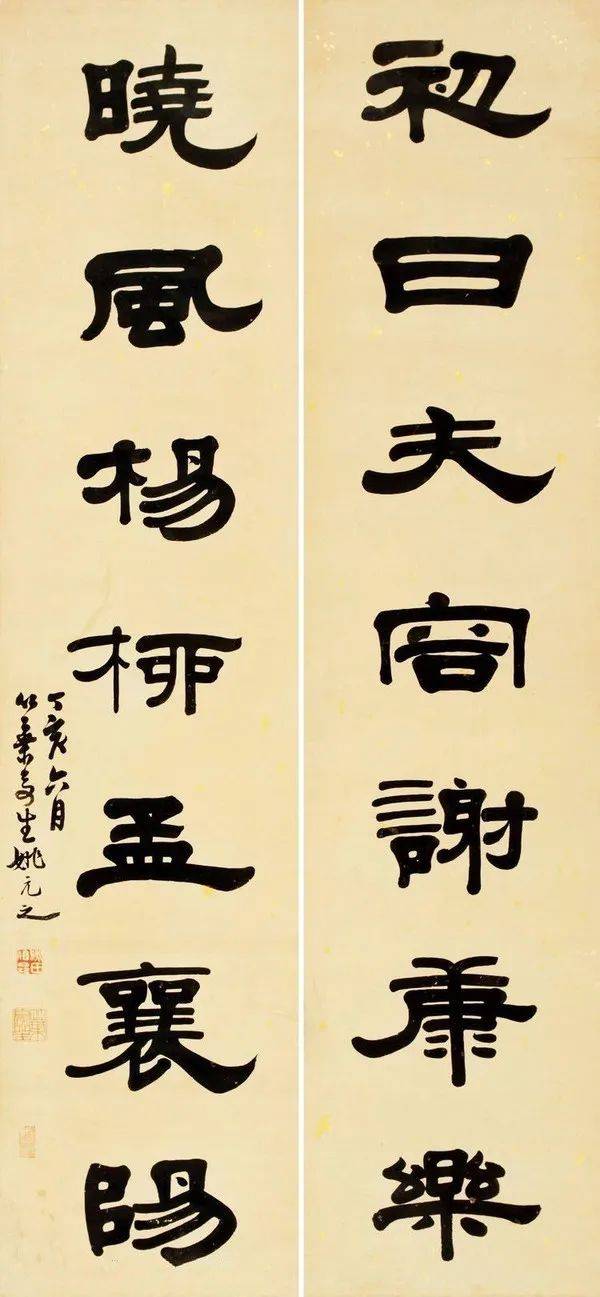 初日夫容謝康樂
曉風楊柳孟襄陽
丁亥六月
竹葉亭生姚元之